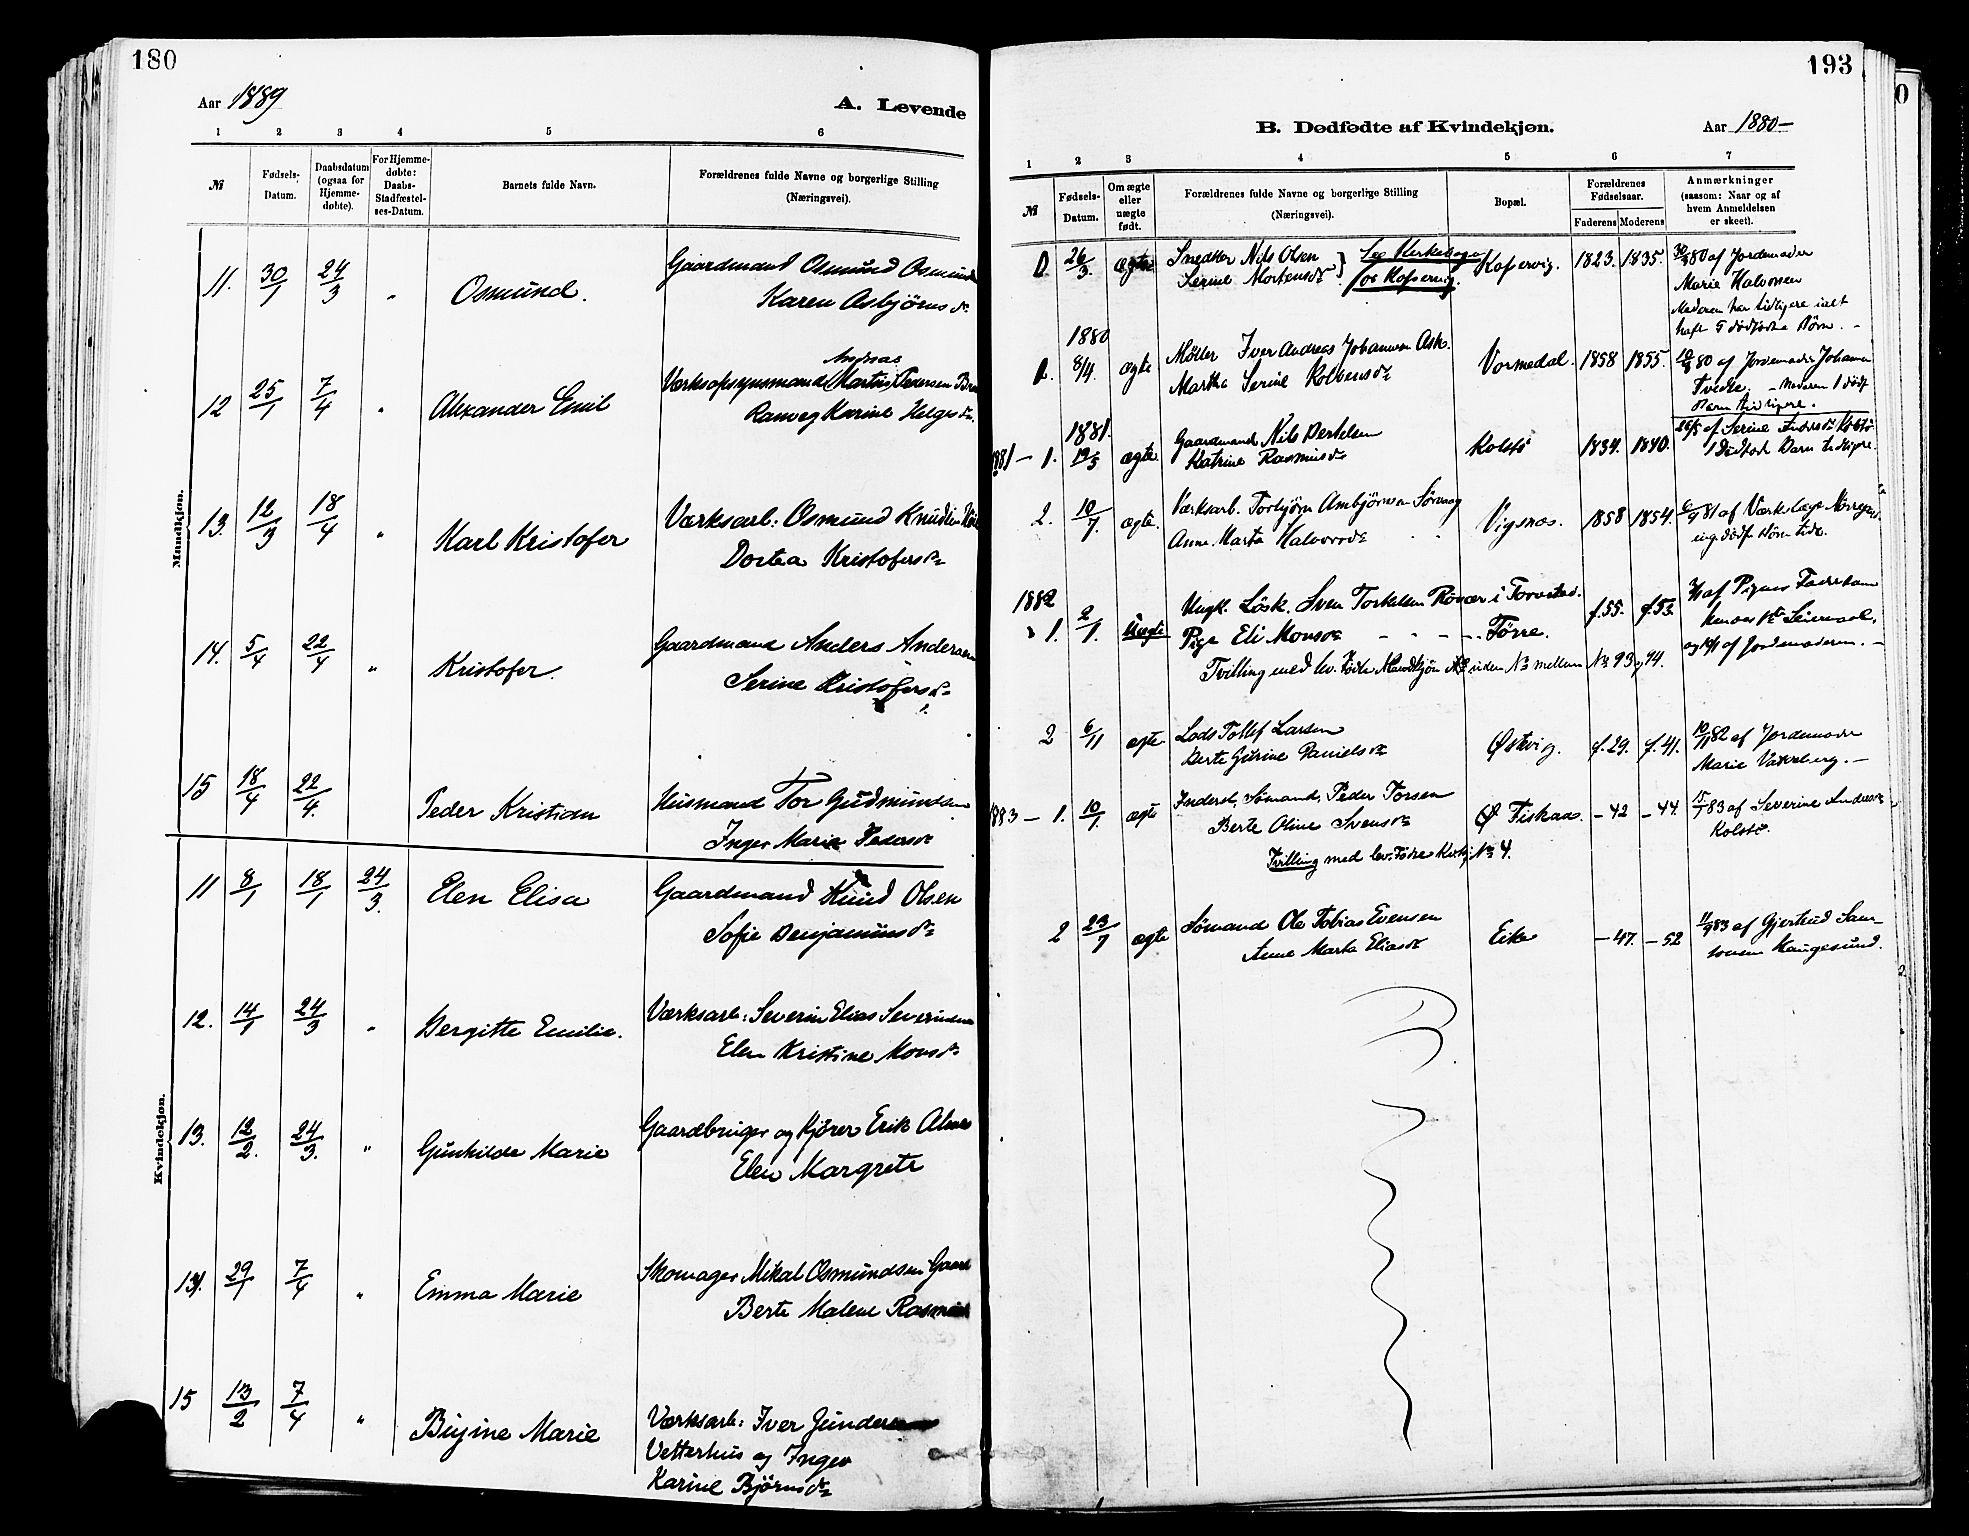 180
Aar 1889
A. Levende
1 2 3 4 5 6
№
Fødsels-
Datum.
Daabsdatum
(ogsaa for
Hjemme-
døbte).
For Hjemme-
døbte:
Daabs-
Stadfæstel-
ses-Datum.
Barnets fulde Navn.
Forældrenes fulde Navne og borgerlige Stilling
(Næringsvei).
Mandkjøn.
11. 30/1 24/3 " Osmund. Gaardmand Osmund Osmunds
Karen Asbjörnsdr
Andreas
12 25/1 7/4 " Alexander Emil Værksopsynsmand Martin Petersen
Ranveg Karine Helgesdr.
13. 12/3 18/4 " Karl Kristofer Værksarb: Osmund Knudsen
Dortea Kristofersdr
14. 5/4 22/4 " Kristofer. Gaardmand Anders Andersen
Serine Kristofersdr
15 18/4 22/4. Peder Kristian Husmand Tor Gudmundsen
Inger Marie Pedersdr
Kvindekjøn.
11 8/1 18/1 24/3. Elen Elisa Gaardmand Knud Olsen
Sofie Benjaminsdr
12. 14/1 24/3 " Bergitte Emilie. Værksarb: Severin Elias Severinsen
Elen Kristine Monsdr
13. 12/2. 24/3. " Gunhilde Marie Gaardbruger og Kjörer Erik
Elen Margrete
14. 29/1 7/4 " Emma Marie Skomager Mikal Osmundsen
Berte Malene
15 13/2 7/4 " Marie Værksarb: Iver
Vetterhus og Inger
Karine Björnsdr
193
B. Dødfødte af Kvindekjøn.
Aar 1880-
1 2 3 4 5 6 7
№
Fødsels-
Datum.
Om ægte
eller
uægte
født.
Forældrenes fulde Navne og borgerlige Stilling
(Næringsvei).
Bopæl.
Forældrenes
Fødselsaar.
Faderens Moderens
Anmærkninger
(saasom: Naar og af
hvem Anmeldelsen
er skeet).
26/3. ægte Snedker Nils Olsen } See Kirkebogen Kopervig. 1823. 1835. 80 af Jordemoder
Serine Mortensdr for Kopervig. Marie Halvorsen
Moderen har tidligere ialt
haft 5 dödfödte Börn. -
1880
1. 8/4. ægte Möller Iver Andreas Johannesen Ask. Vormedal. 1858 1855. 80 af Jordemoder Johanne
Martha Serine Tvedte. - Moderen 1 dödf
Barn tidligere.
1881.
1881 - 1. 19/5 ægte Gaardmand Nils Bertelsen Kolstö 1834. 1840. af Serine
Katrine Rasmusdr 1 Dödfödt Barn tidligere.
2. 10/7. ægte. Værksarb. Torbjörn Ambjörnsen Sörvaag Vigsnæs. 1858 1854. 81 af
Anne Marta Halvorsdr ing. dödf Börn tidl.
1882
1. 2/1. Uægte Ungk. Lösk. Sven Torkelsen Rövær i Torvestad. f.55. f.53. af Pigens
Pige Eli Monsdr - - - Förre.
og af Jordemoderen. -
Tvilling med lv. Födte Mandkjön uden No mellem No 93 og 94.
2 6/11 ægte Lods Tollef Larsen Östvig. f.29. f.41. 10/11 82 af Jordemoder
Berte Gurine Danielsdr Marie Vakkeberg. -
1883 - 1. 10/1. ægte Inderst, Sömand, Peder Torsen Ö Fiskaa. - 42 - 44. 83 af Severine
Berte Oline Svensdr Kolstö.
Tvilling med lev. Födte Kvkj. No 4.
2 23/7 ægte Sömand Ole Tobias Evensen Eike - 47. - 52 11/9 83 af Gjertrud Sam-
Anne Marta Eliasdr sonsen Haugesund.